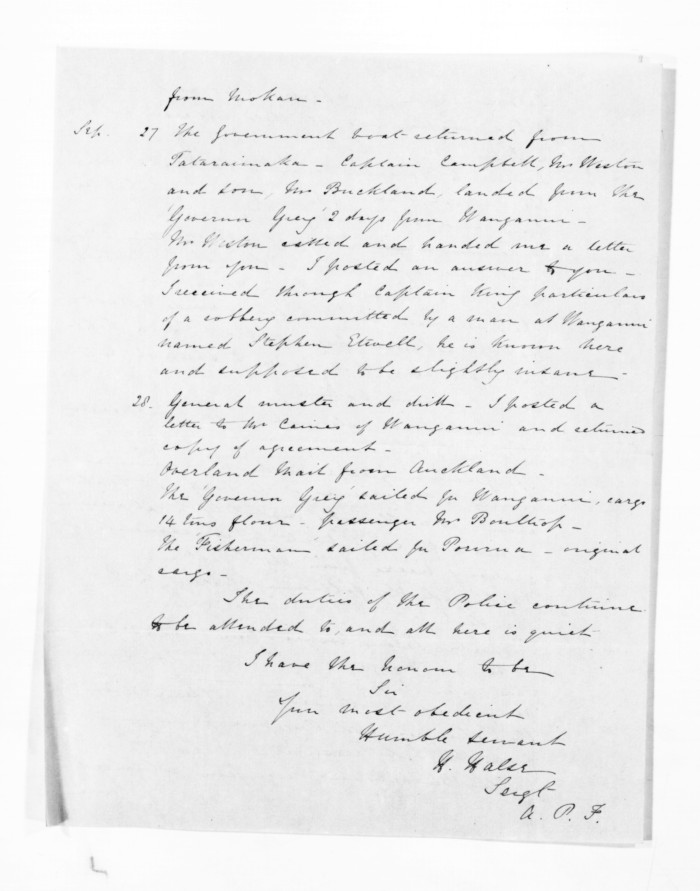 from Mokau -
Sep. 27 The Government boat returned from
Tataraimaka - Captain Campbell, Mr Weston
and son, Mr Buckland, landed from the
'Governor Grey' 2 days from Wanganui -
Mr Weston called and handed me a letter
from you - I posted an answer to you -
I received through Captain King particulars
of a robbery committed by a man at Wanganui
named Stephen Etwell, he is known here
and supposed to be slightly insane -
28. General muster and drill - I posted a
letter to Mr Caines of Wanganui and returned
copy of agreement -
Overland Mail from Auckland -
The 'Governor Grey' sailed for Wanganui, cargo
14 tons flour - passenger Mr
The 'Fisherman' sailed for Porirua - original
cargo -
The duties of the Police continue
to be attended to, and all here is quiet
I have the honour to be
Sir
Your most obedient
Humble servant
H. Halse
Sergt
A. P. F.